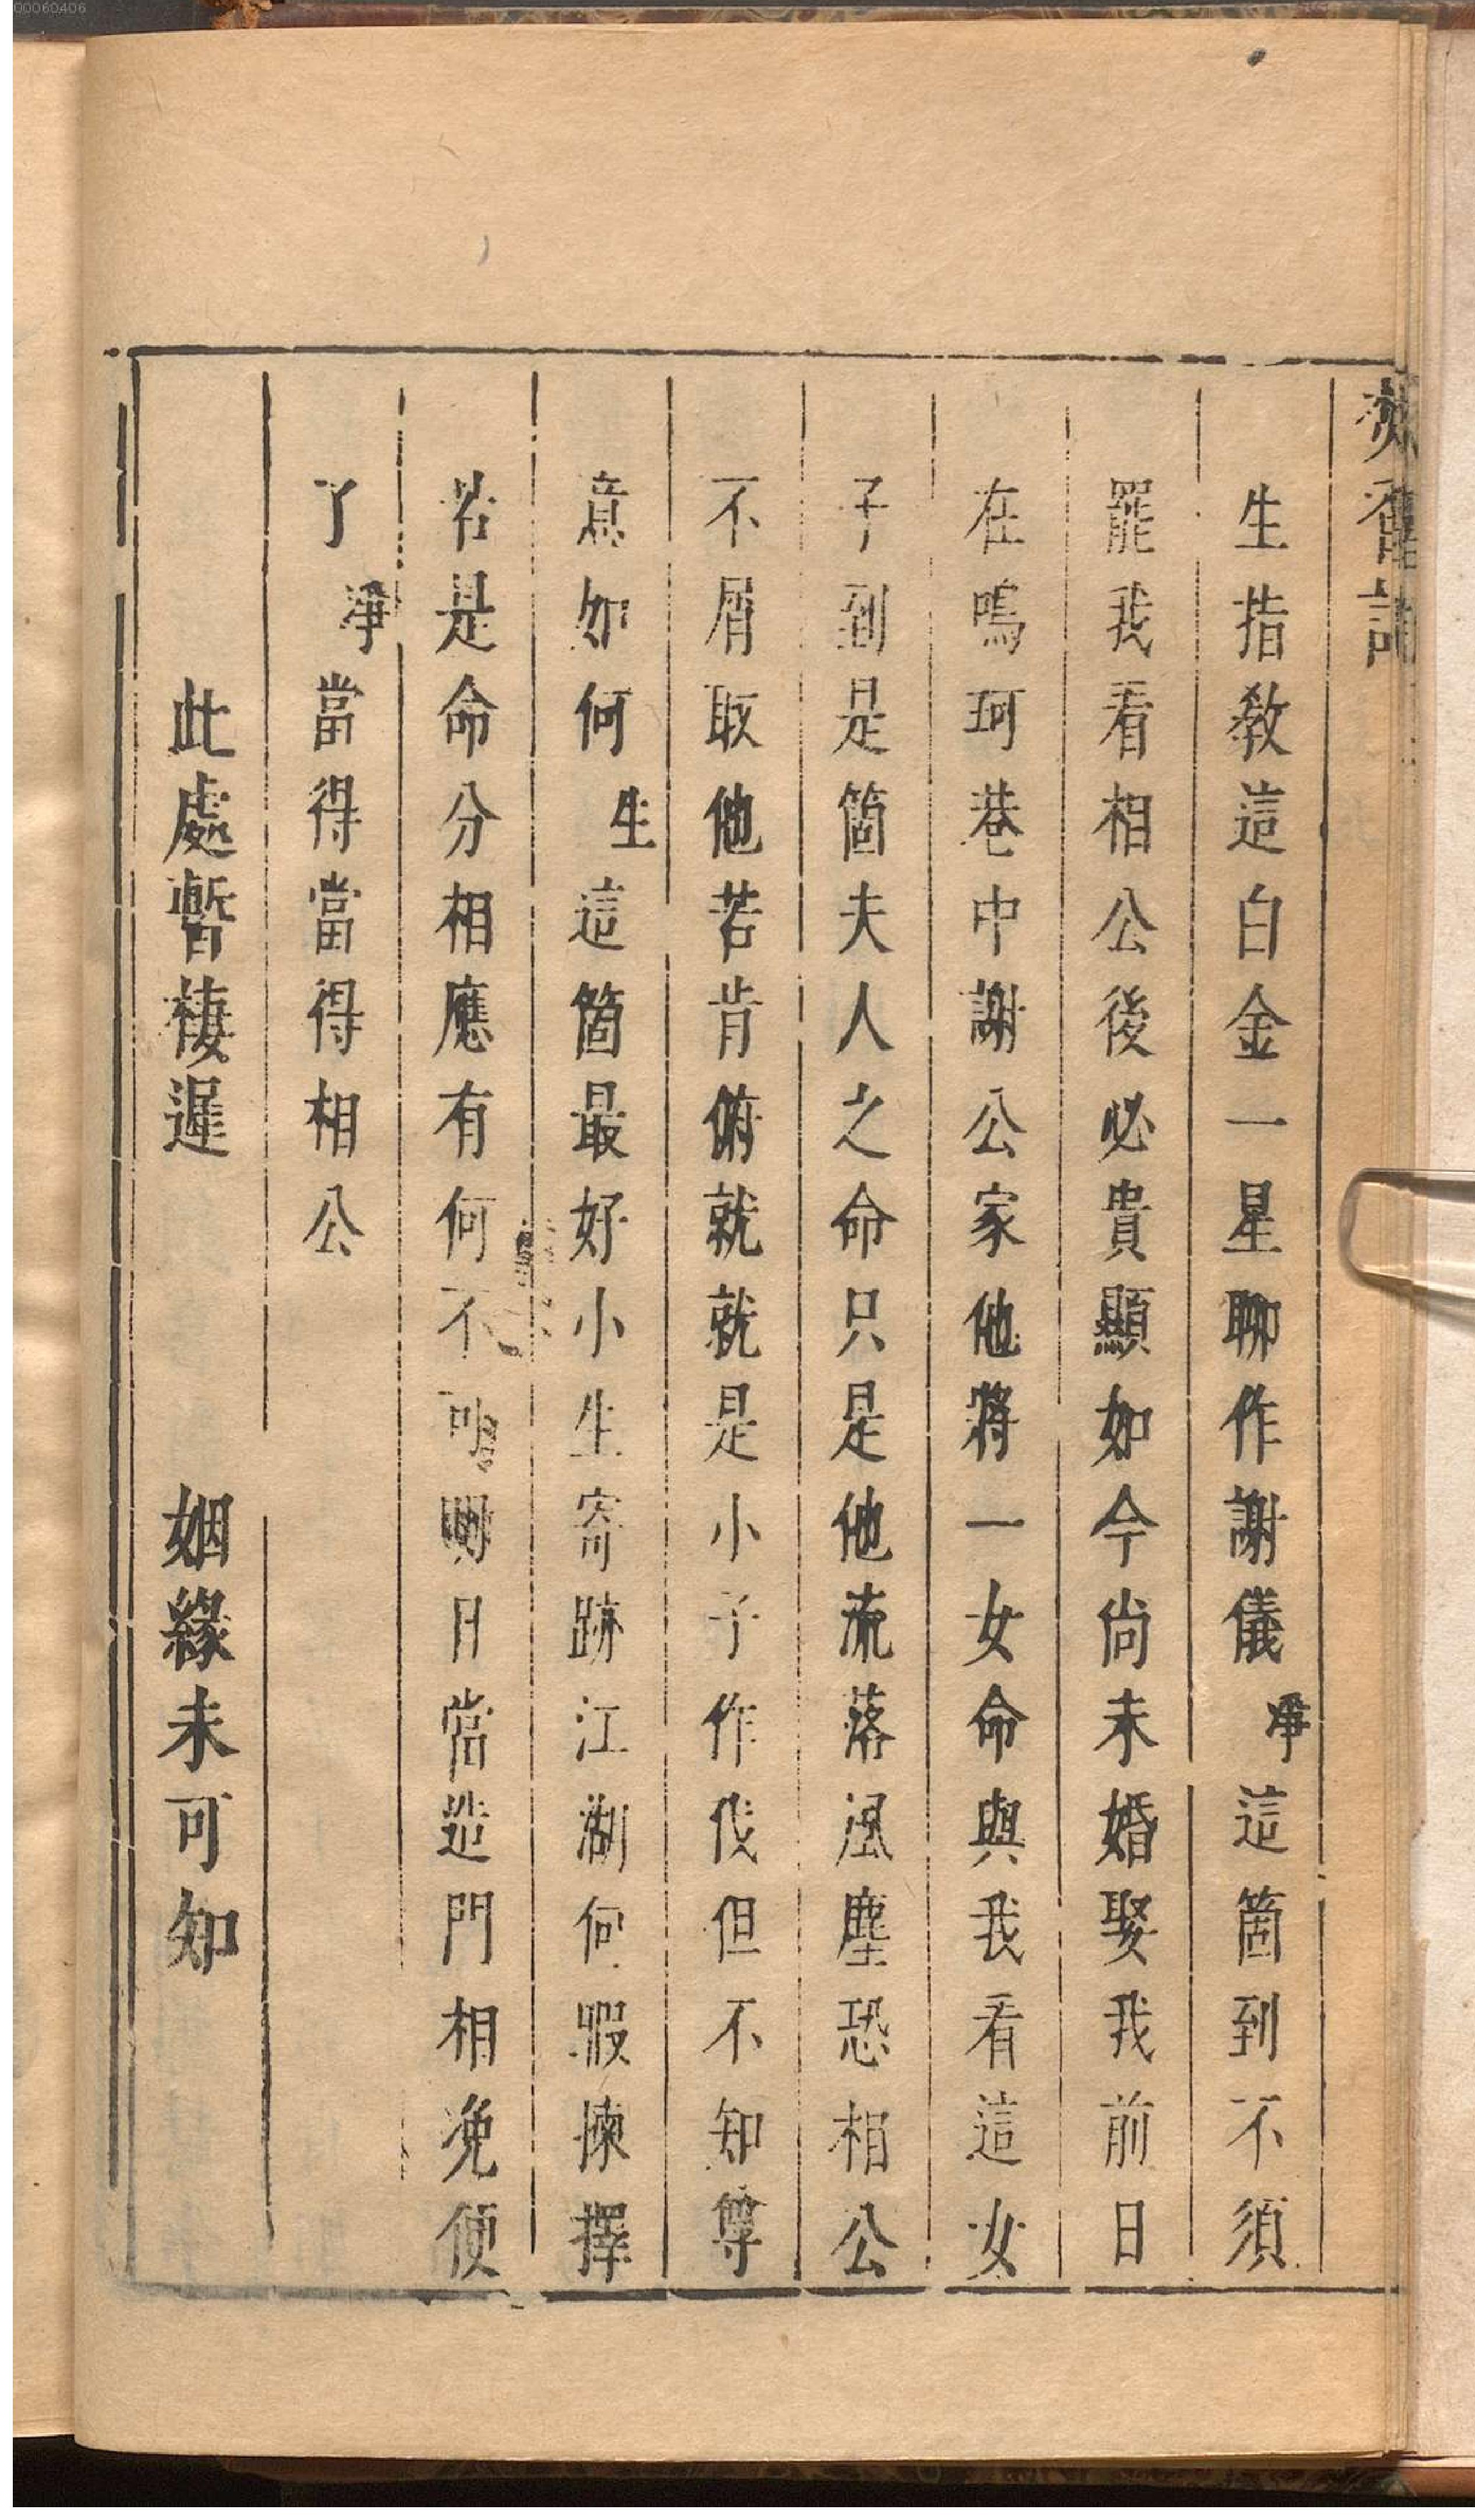 00060406
焚香記
生指教這白金一星聊作謝儀淨這箇到不須
罷我看相公後必貴顯如今尚未婚娶我前日
在鳴珂巷中謝公家他將一女命與我看這女
子到是箇夫人之命只是他流落風塵恐相公
不屑取他若肯俯就就是小子作伐但不知尊
意如何生這箇最好小生寄跡江湖何暇揀擇
若是命分相應有何不可明日當造門相浼便
了淨當得當得相公
此處暫棲遲 姻緣未可知